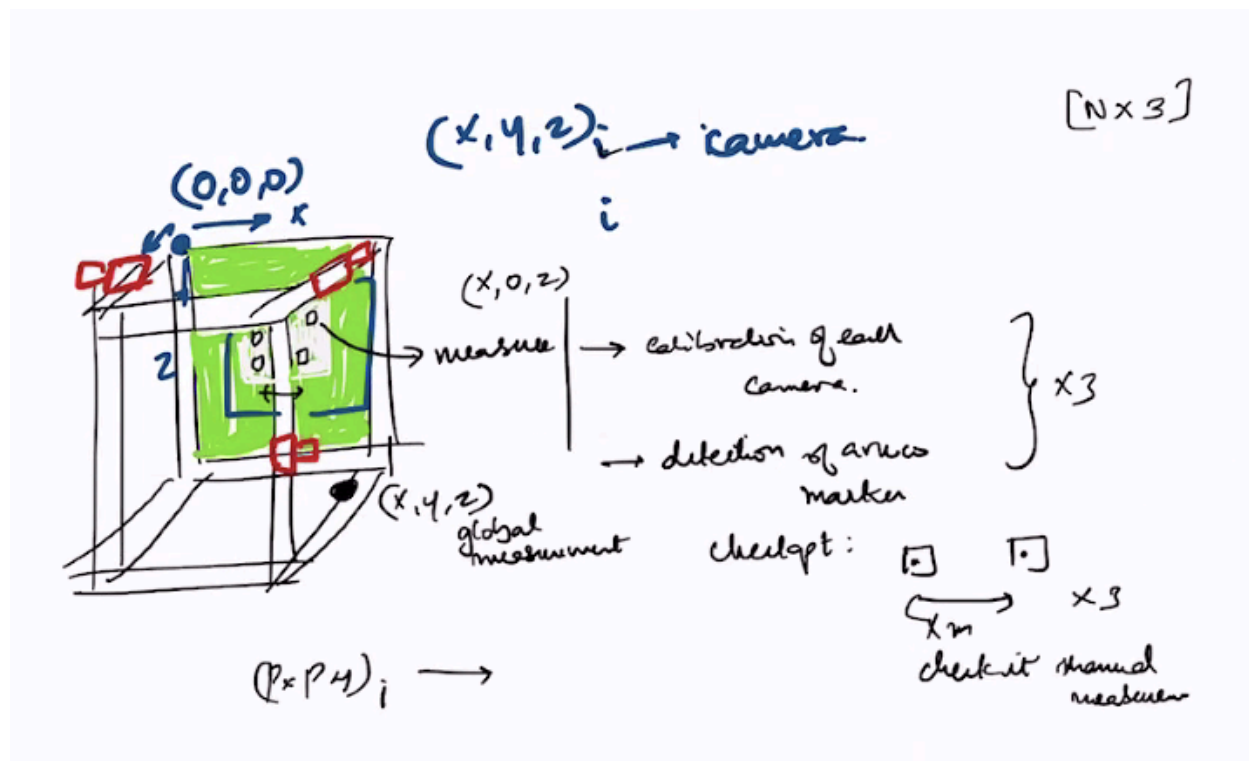 [N x 3]
(x, y, z)i → camera
(0,0,0)
→ x
i
(x, 0, z)
z
measure → calibration of each
camera.
x 3
→ detection of aruco
marker
(x, y, z)
global
measurement
checkpt :
x 3
x m
check it manual
(Px Py)i →